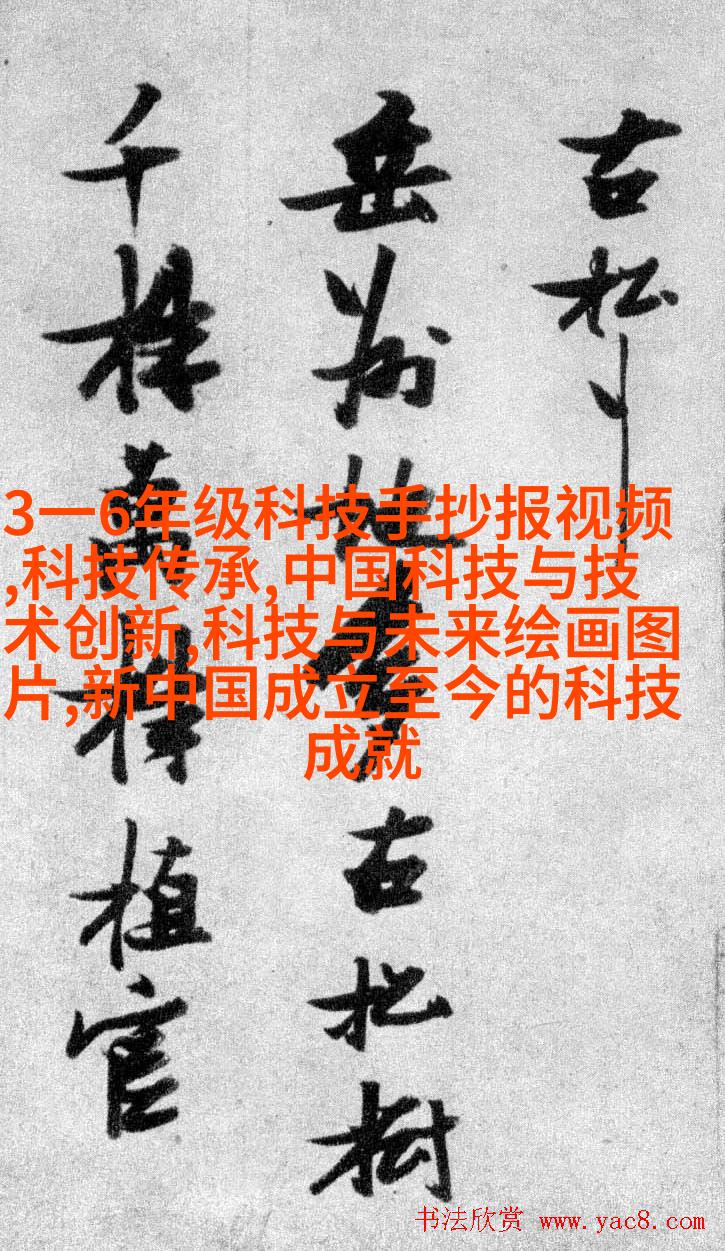 古松
岳州地多古松樹
千株萬株植官
3一6年级科技手抄报视频
,科技传承,中国科技与技
术创新,科技与未来绘画图
片,新中国成立至今的科技
成就
书法欣赏 www.yac8.com